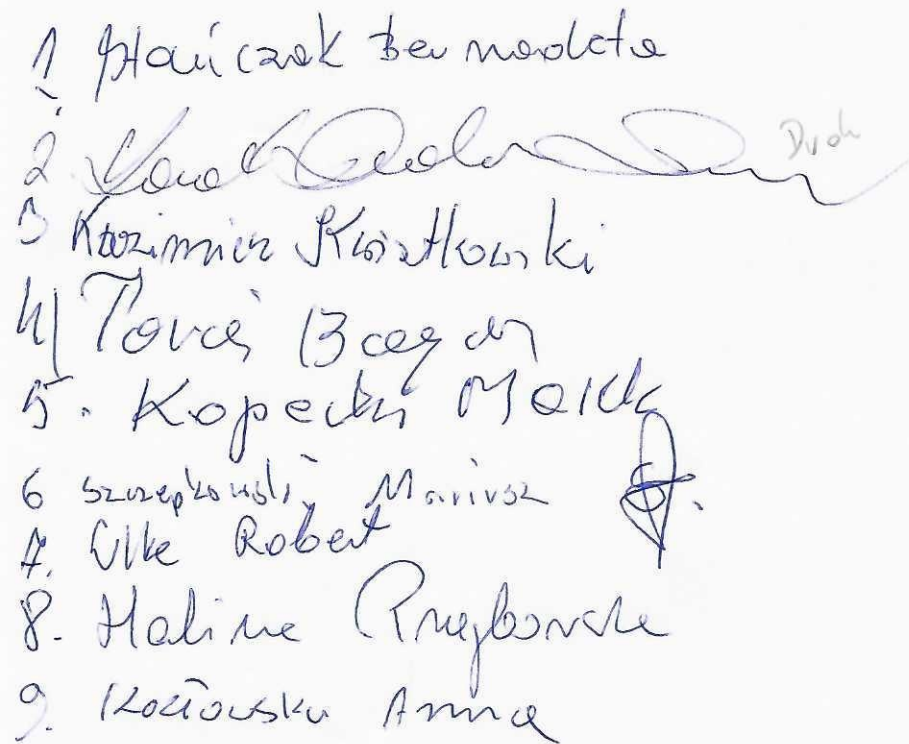 1. Stańczak Bernadeta
2
3 Kazimierz Kwiatkowski
4)
5. Kopecki Marek
6 Szczepkowski Mariusz
7. Ulke Robert
8. Halina Przybowska
9. Kozłowska Anna